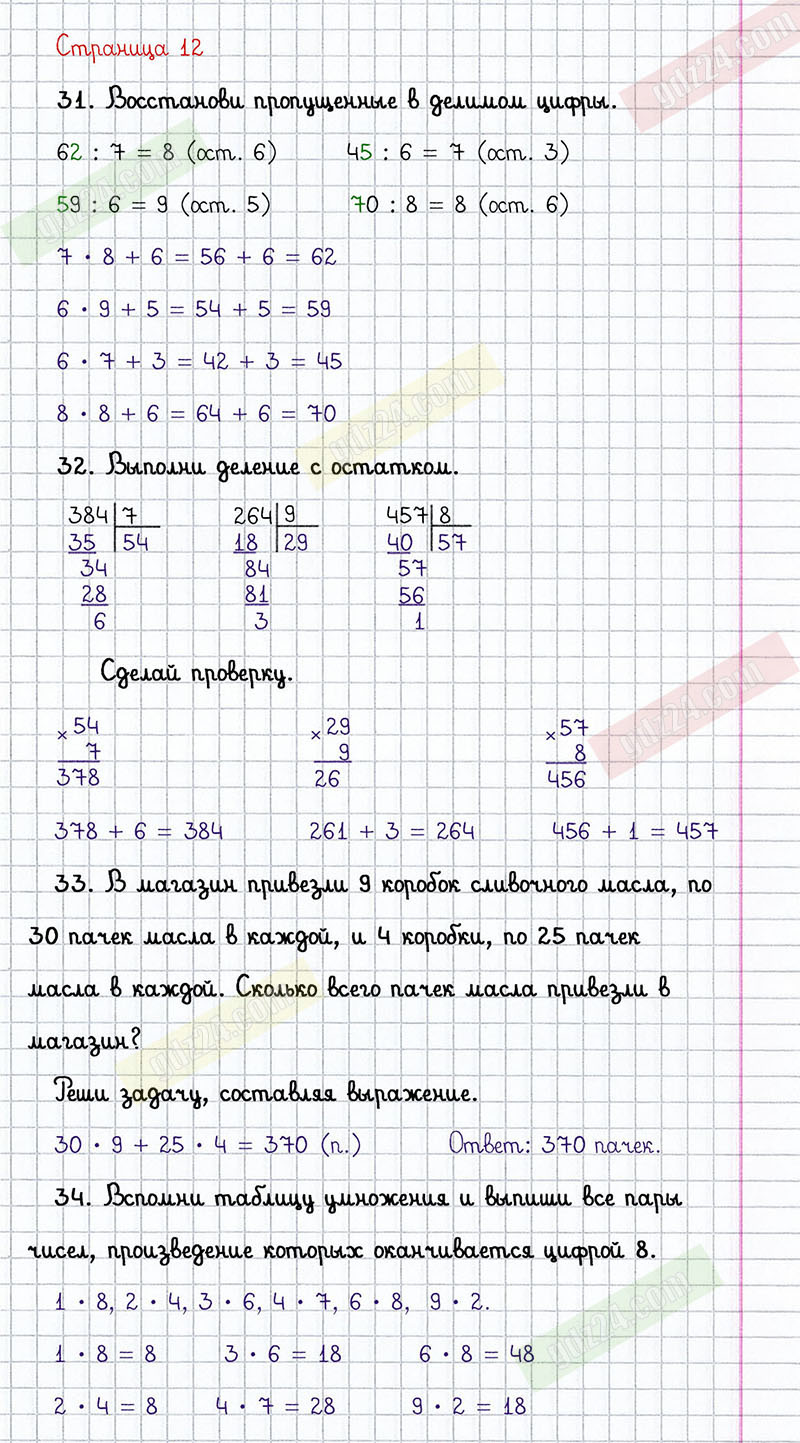 Страница 12
31. Восстанови пропущенные в делимом цифры.
62 : 7 = 8 (ост. 6) 45 : 6 = 7 (ост. 3)
59 : 6 = 9 (ост. 5) 70 : 8 = 8 (ост. 6)
7 · 8 + 6 = 56 + 6 = 62
6 · 9 + 5 = 54 + 5 = 59
6 · 7 + 3 = 42 + 3 = 45
8 · 8 + 6 = 64 + 6 = 70
32. Выполни деление с остатком.
384 7 264 9 457 8
35 54 18 29 40 57
34 84 57
28 81 56
6 3 1
Сделай проверку.
× 54 × 29 × 57
7 9 8
378 26 456
378 + 6 = 384 261 + 3 = 264 456 + 1 = 457
33. В магазин привезли 9 коробок сливочного масла, по
30 пачек масла в каждой, и 4 коробки, по 25 пачек
масла в каждой. Сколько всего пачек масла привезли в
магазин?
Реши задачу, составляя выражение.
30 · 9 + 25 · 4 = 370 (п.) Ответ: 370 пачек.
34. Вспомни таблицу умножения и выпиши все пары
чисел, произведение которых оканчивается цифрой 8.
1 · 8, 2 · 4, 3 · 6, 4 · 7, 6 · 8, 9 · 2.
1 · 8 = 8 3 · 6 = 18 6 · 8 = 48
2 · 4 = 8 4 · 7 = 28 9 · 2 = 18
gdz24.com
gdz24.com
gdz24.com
gdz24.com
gdz24.com
gdz24.com